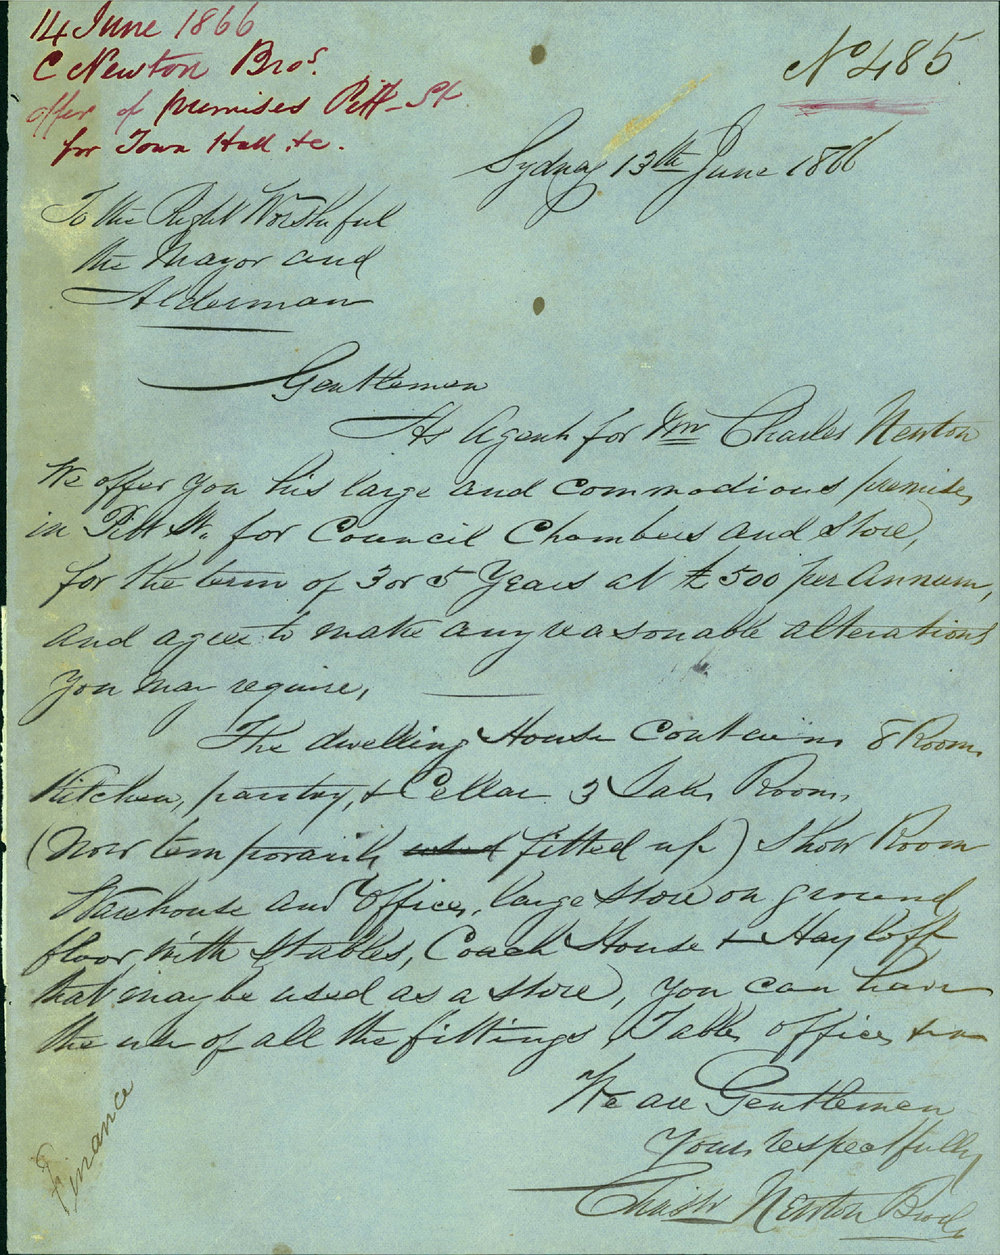 14 June 1866
C Newton Bros.
offer of premises Pitt St
for Town Hall &c.
No 485
Sydney 13th June 1866
To the Right Worshipful
the Mayor and
Alderman
Gentlemen
As Agents for Mr Charles Newton
We offer you his large and commodious premises
in Pitt St. for Council Chambers and Store,
for the term of 3 or 5 Years at £500 per Annum,
and agree to make any reasonable alterations
you may require,
The dwelling House Contains 8 Rooms
Kitchen, pantry, & Cellar 3 Sales Rooms,
(now temporarily used fitted up) Show Room
Warehouse and Offices, large Store on ground
floor with Stables, Coach House & Hay loft
that may be used as a store, you can have
the use of all the fittings, Tables, offices &c
We are Gentlemen
Yours respectfully
Newton
Finance